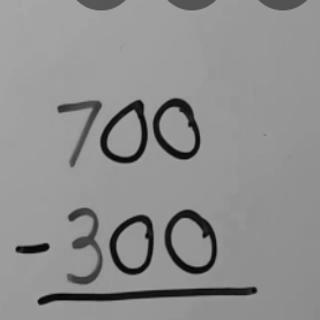 700
-300